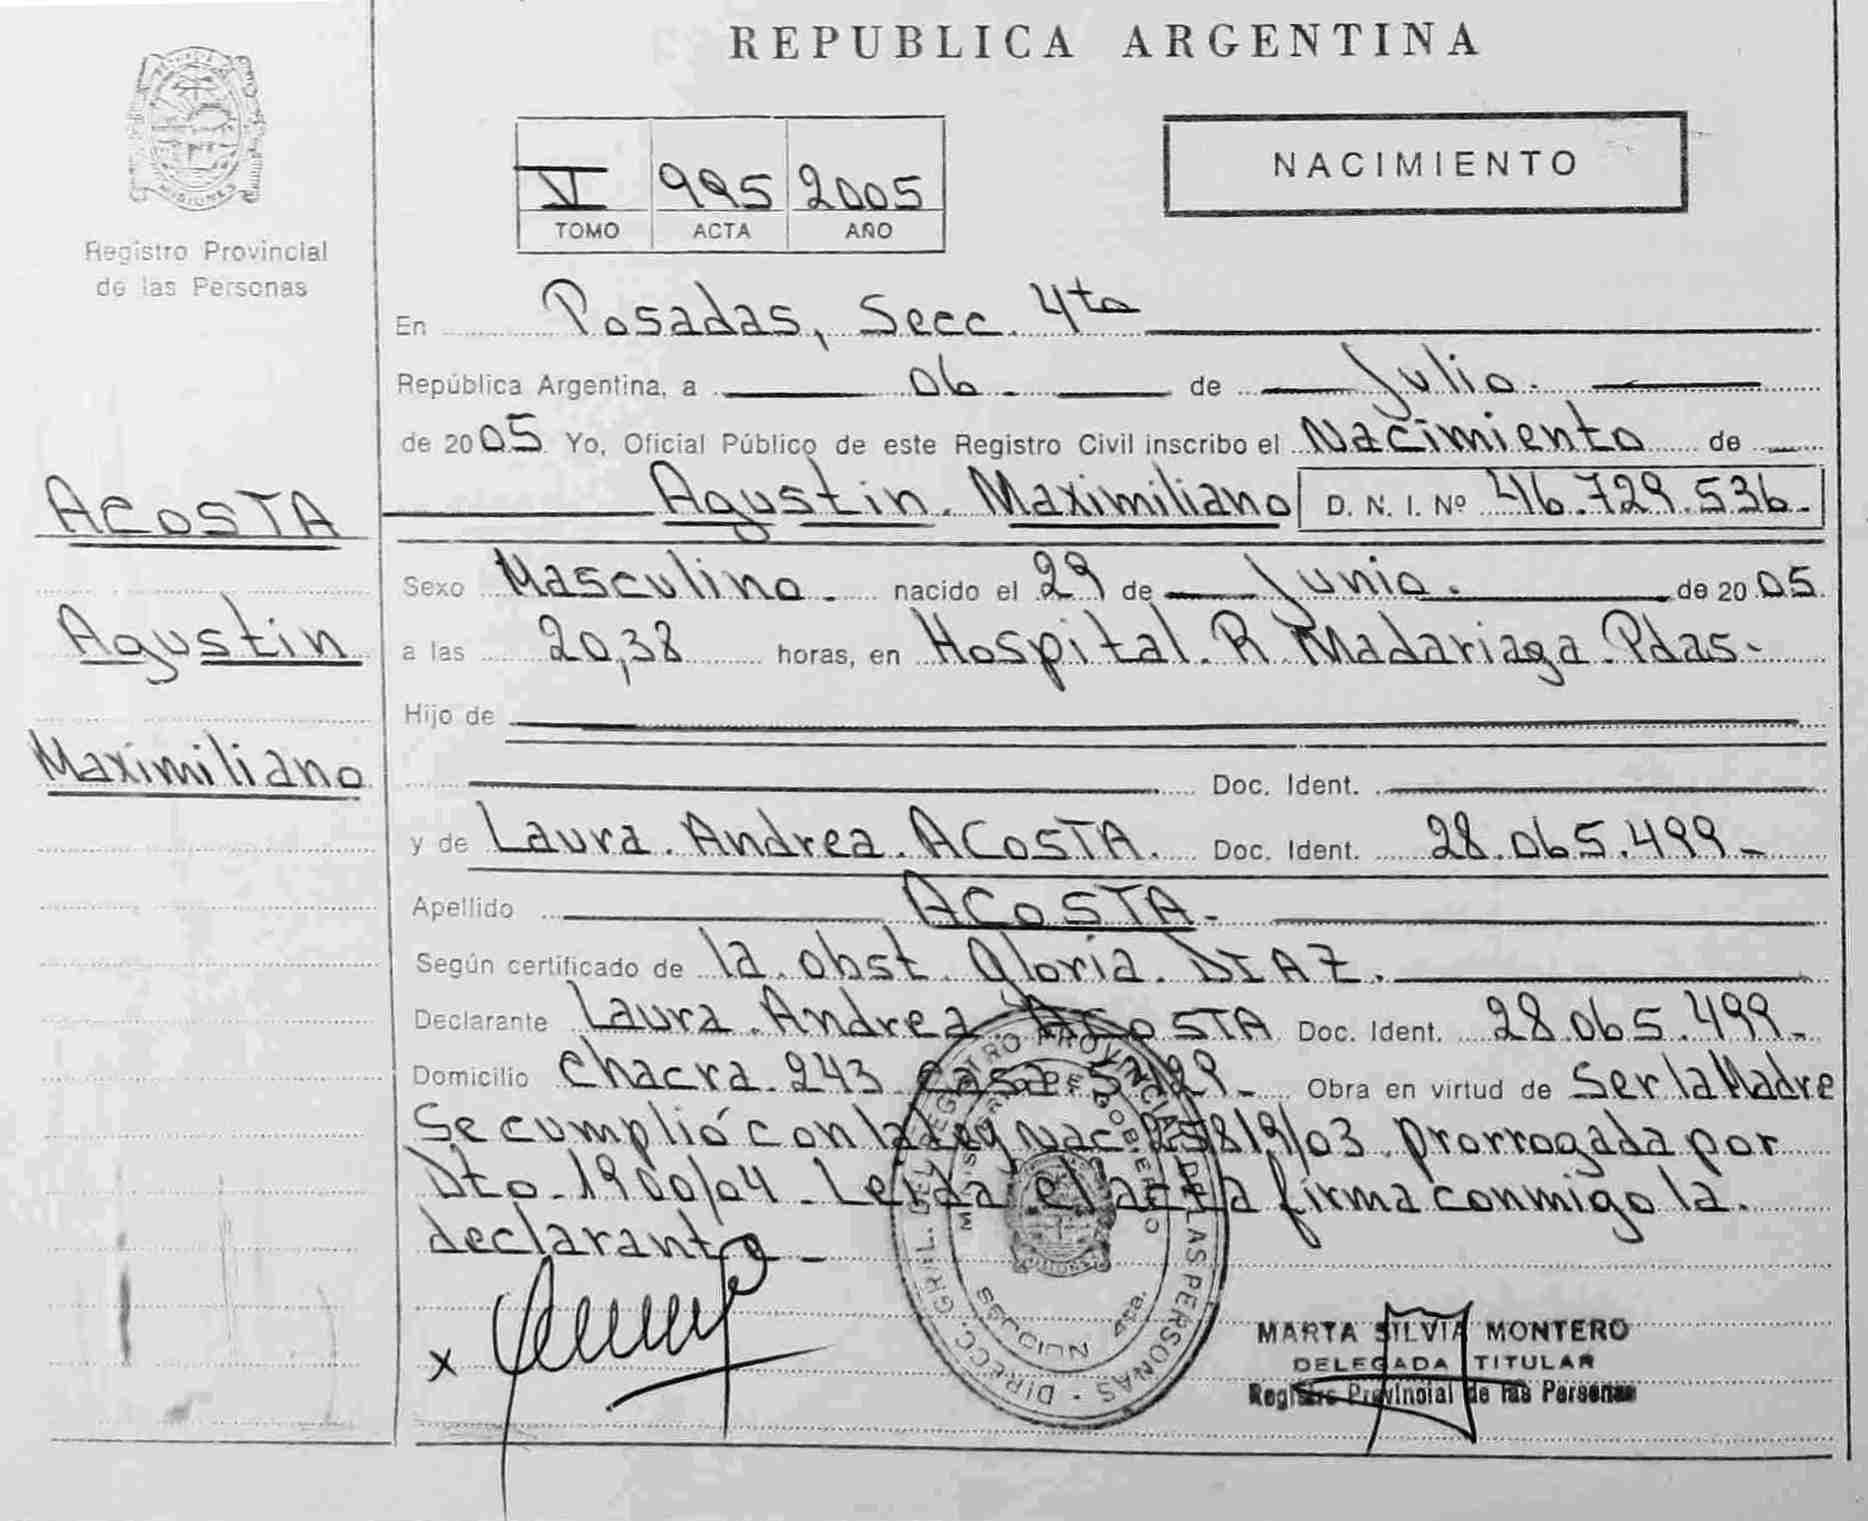 REPUBLICA ARGENTINA
NACIMIENTO
V 995 2005
TOMO ACTA AÑO
MISIONES
Registro Provincial
de las Personas
ACOSTA
Agustin
Maximiliano
En Posadas, Secc. 4ta
República Argentina, a 06 de Julio.
de 2005 Yo, Oficial Público de este Registro Civil inscribo el Nacimiento de
Agustin. Maximiliano D. N. I. Nº 46.729.536.
Sexo Masculino. nacido el 29 de Junio. de 2005.
a las 20,38 horas, en Hospital. R. Madariaga. Pdas.
Hijo de
Doc. Ident.
y de Laura. Andrea. ACOSTA. Doc. Ident. 28.065.499-
Apellido ACOSTA-
Según certificado de la obst. Gloria. DIAZ.
Declarante Laura. Andrea. ACOSTA Doc. Ident. 28.065.499-
Domicilio Chacra. 243 casa Obra en virtud de Ser la Madre
Se cumplió con la Ley Nac. 25819/03. prorrogada por
Dto. 1900/04 - Leida el acta firma conmigo la.
declarante -
x
DIRECC. GRAL. DEL REGISTRO PROVINCIAL DE LAS PERSONAS
MINISTERIO DE GOBIERNO
MISIONES
SECCION 4ta.
MARTA SILVIA MONTERO
DELEGADA TITULAR
Registro Provincial de las Personas